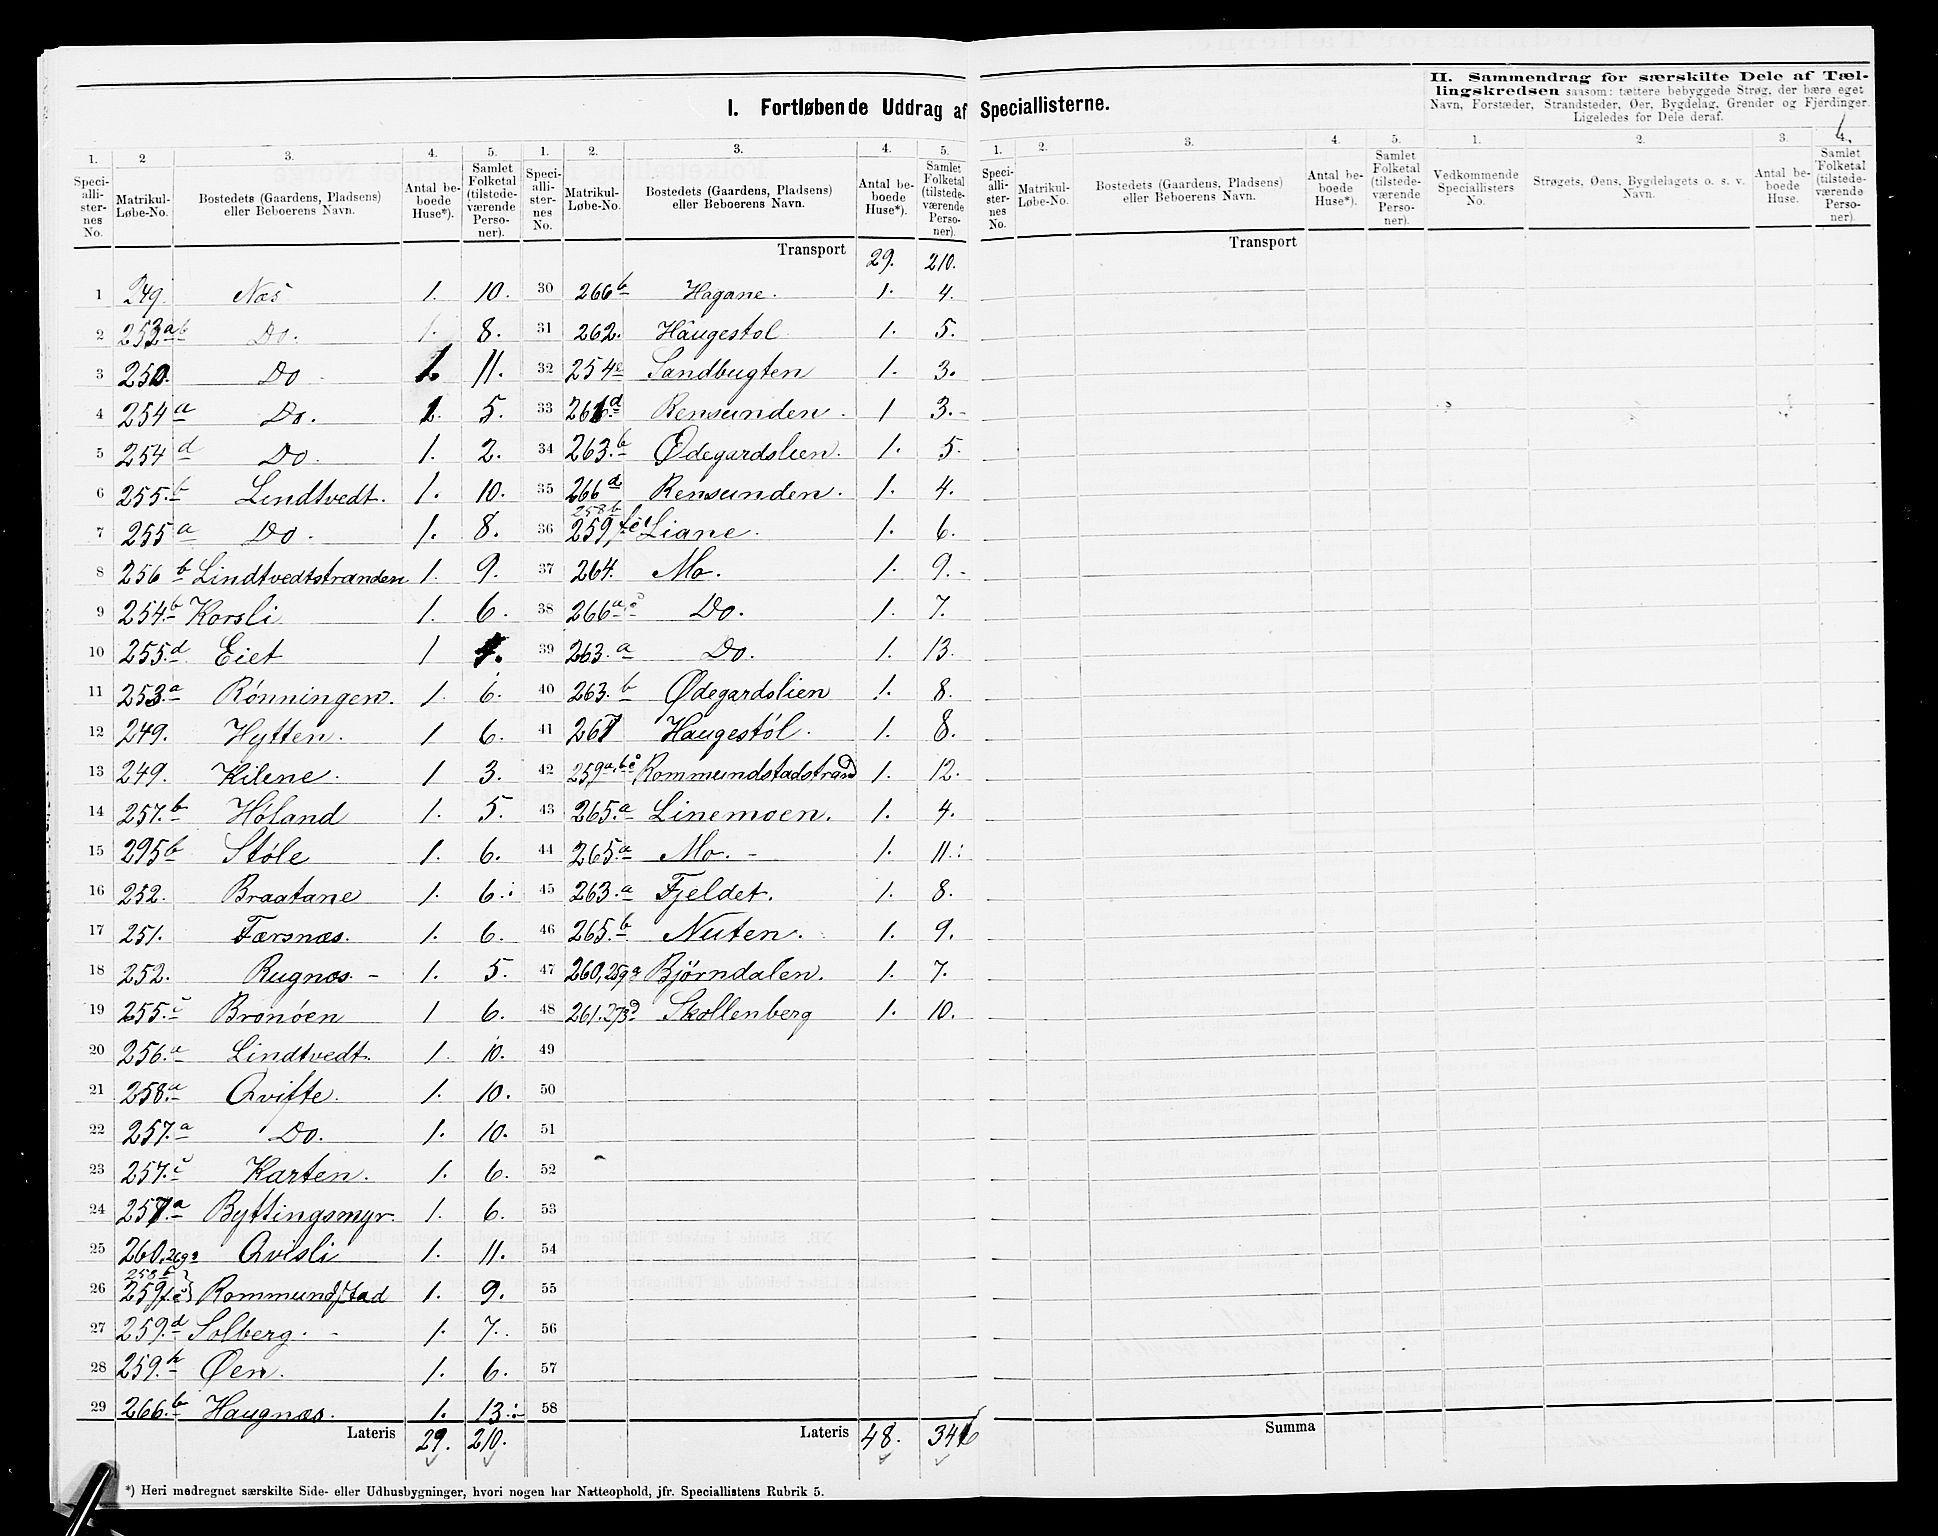 I. Fortløbende Uddrag af Speciallisterne.
II. Sammendrag for særskilte Dele af Tæl-
lingskredsen saasom: tættere bebyggede Strøg, der bære eget
Navn, Forstæder, Strandsteder, Øer, Bygdelag, Grender og Fjerdinger.
Ligeledes for Dele deraf.
1. 2 3. 4. 5.
Speci-alli-ster-nes No. Matrikul-Løbe-No. Bostedets (Gaardens, Pladsens) eller Beboerens Navn. Antal be-boede Huse*). Samlet Folketal (tilstede-værende Perso-ner).
1 249. Næs 1. 10.
2 253ab Do. 1. 8.
3 250. Do 11.
4 254a Do. 5.
5 254d Do. 1. 2.
6 255.b Lindtvedt. 1. 10.
7 255a Do. 1. 8.
8 256b Lindtvedtstranden 1. 9.
9 254.b Korsli 1. 6.
10 255.d Eiet 1
11 253.a Rönningen. 1. 6.
12 249. Hytten. 1 6.
13 249. Kilene. 1 3.
14 257.b Höland 1. 5.
15 295b Støle 1. 6.
16 252. Braatane 1. 6.
17 251. Færsnæs. 1. 6.
18 252. Rugnæs. - 1. 5.
19 255.c Bronöen 1 6.
20 256.a Lindtvedt 1. 10.
21 258.a Qvitte. 1. 10.
22 257.a Do. 1. 10.
23 257.c Karten. 1. 6.
24 257.a Byttingsmyr. 1. 6.
25 260, Qvisli 1. 11.
258b
26 259 Rommundstad 1. 9.
27 259.d Solberg. - 1. 7.
28 259.h Øen. 1. 6.
29 266.b Haugnæs. 1. 13.
Lateris 29. 210.
*) Heri medregnet særskilte Side- eller Udhusbygninger, hvori nogen har Natteophold, jfr. Speciallistens Rubrik 5.
1. 2. 3. 4. 5.
Speci-alli-ster-nes No. Matrikul-Løbe-No. Bostedets (Gaardens, Pladsens) eller Beboerens Navn. Antal be-boede Huse*). Samlet Folketal (tilstede-værende Perso-ner).
Transport 29. 210.
30 266b Hagane. 1. 4.
31 262. Haugestol 1. 5.
32 254e Sandbugten 1. 3.
33 Rensunden. 1 3.-
34 263.b Ødegardslien. 1. 5.
35 266d Rensunden. 1. 4.
258b
36 259 Liane. 1. 6.
37 264. Mo. 1. 9.-
38 266a,c Do. 1. 7.
39 263.a Do. 1. 13.
40 263.b Ødegardslien 1. 8.
41 267 Haugestöl. 1. 8.
42 259a,b,c Rommundstadstrand 1. 12.
43 265.a Linemoen. 1. 4.
44 265.a Mo. - 1. 11.
45 263.a Fjeldet. 1. 8.
46 265.b Nuten. 1. 9.
47 260,259a Björndalen. 1. 7.
48 261.273d Skollenberg 1. 10.
49
50
51
52
53
54
55
56
57
58
Lateris 48. 346
1. 2. 3. 4. 5.
Speci-alli-ster-nes No. Matrikul-Løbe-No. Bostedets (Gaardens, Pladsens) eller Beboerens Navn. Antal be-boede Huse*). Samlet Folketal (tilstede-værende Perso-ner).
Transport
Summa
1. 2. 3. 4.
Vedkommende Speciallisters No. Strøgets, Øens, Bygdelagets o. s. v. Navn. Antal be-boede Huse. Samlet Folketal (tilstede-værende Perso-ner).